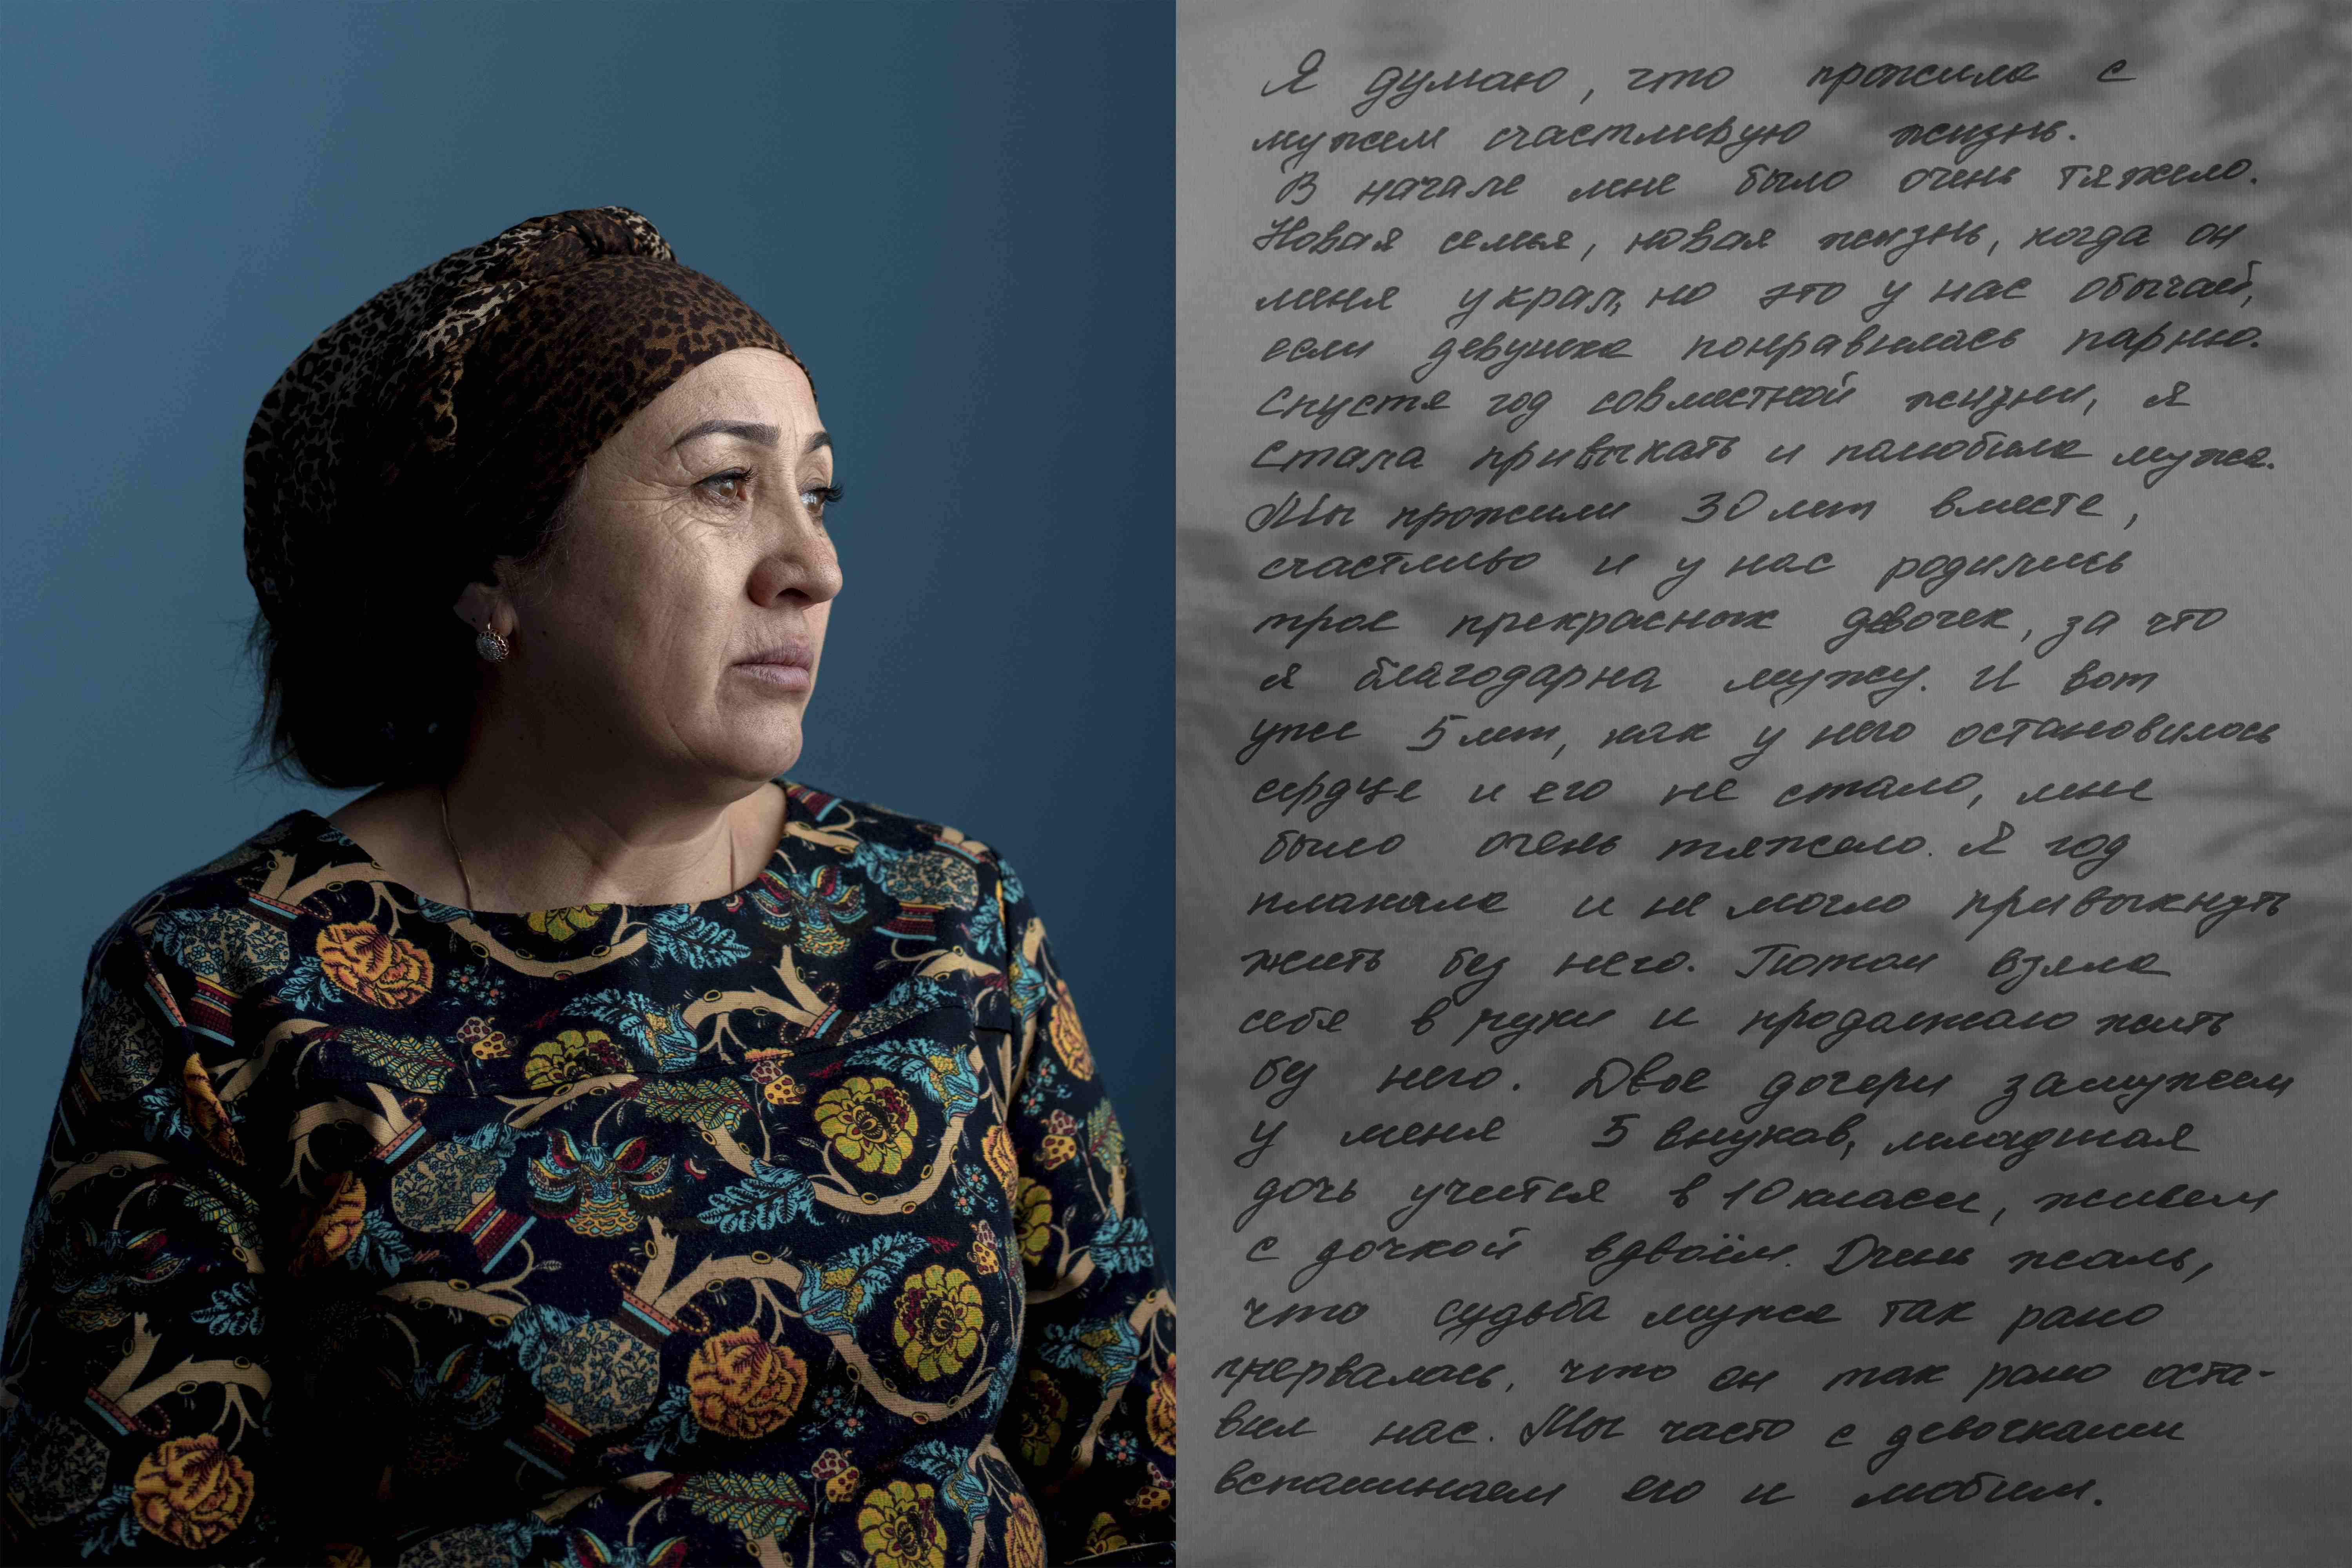 Я думаю, что прожила с
мужем счастливую жизнь.
В начале мне было очень тяжело.
Новая семья, новая жизнь, когда он
меня украл, но это у нас обычай,
если девушка понравилась парню.
Спустя год совместной жизни, я
стала привыкать и полюбила мужа.
Мы прожили 30 лет вместе,
счастливо и у нас родились
трое прекрасных девочек, за что
я благодарна мужу. И вот
уже 5 лет, как у него остановилось
сердце и его не стало, мне
было очень тяжело. Я год
плакала и не могло привыкнуть
жить без него. Потом взяла
себя в руки и продолжаю жить
без него. Двое дочери замужем
у меня 5 внуков, младшая
дочь учится в 10 классе, живем
с дочкой вдвоём. Очень жаль,
что судьба мужа так рано
прервалась, что он так рано оста-
вил нас. Мы часто с девочками
вспоминаем его и любим.